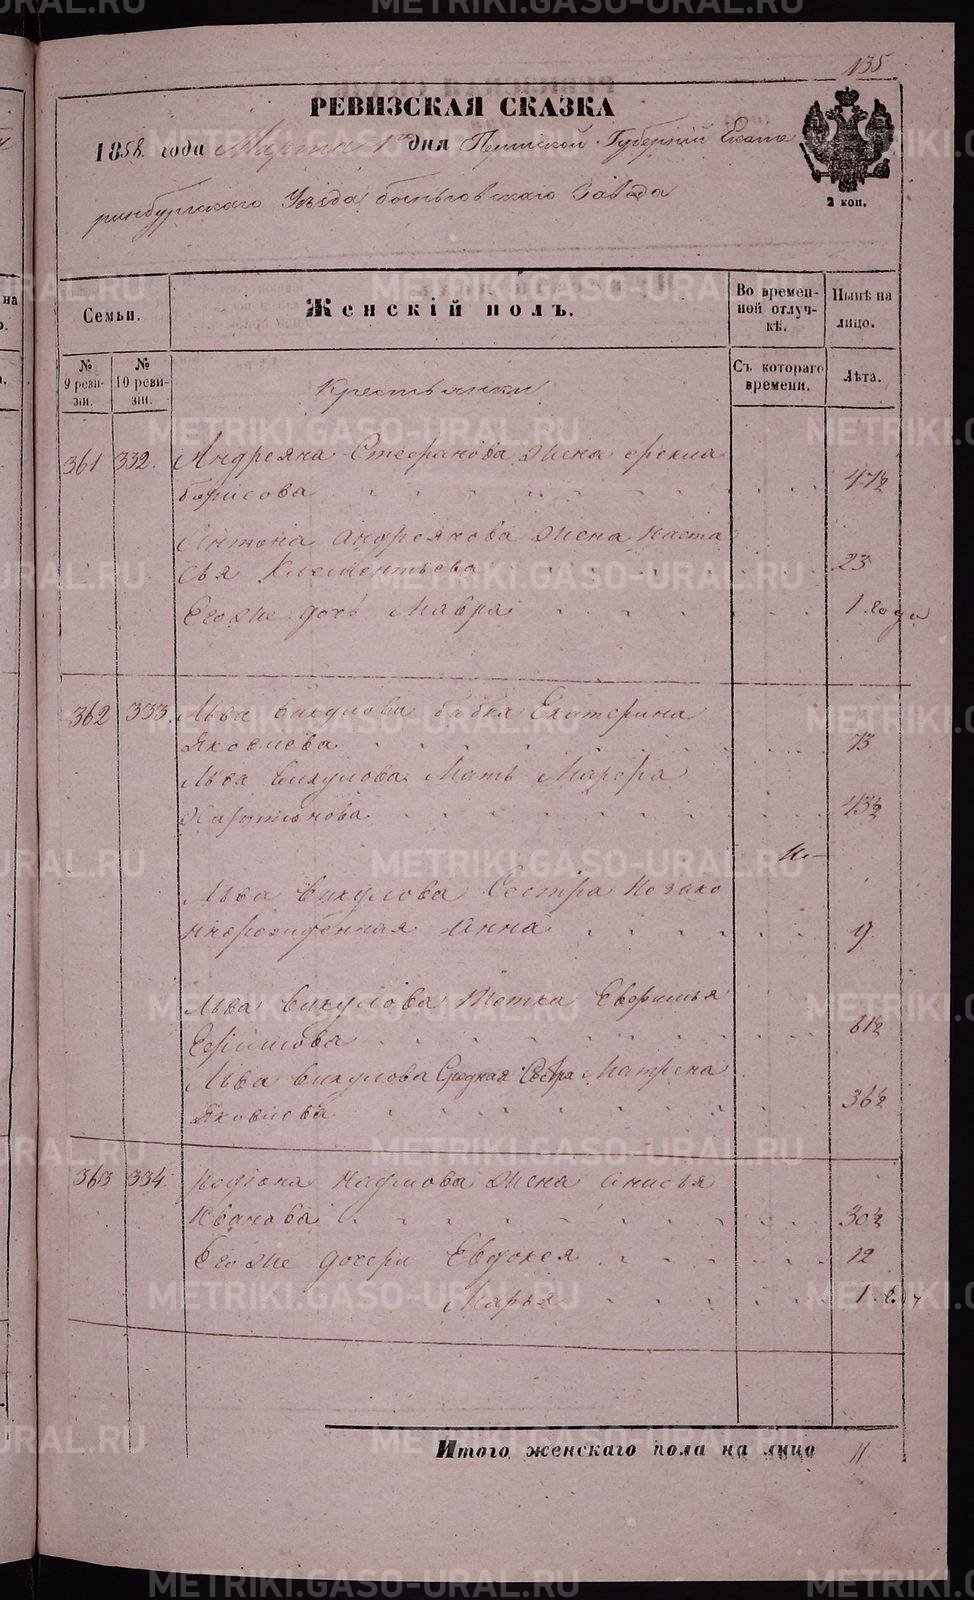 135
РЕВИЗСКАЯ СКАЗКА
1858 года Марта 1го дня Пермской Губернiй Екате
ринбургскаго Уѣзда Завода
2 коп.
Семьи.
Женскiй полъ.
Во времен-
ной отлуч-
кѣ.
Нынѣ на
лицо.
№
9 реви-
зiи.
№
10 реви-
зiи.
Крестьянки
Съ котораго
времени.
Лѣта.
361 332. Андреяна Стефанова жена Фекла
Борисова 47½
Антона Андреянова жена Наста
сья Клементьева 23
Его же дочь Мавра 1 года
362 333. Льва Викулова бабка Екатерина
Яковлева 73
Льва Викулова Мать Марфа
Харитонова 43½
Льва Викулова Сестра Незако
ннорожденная Анна 9
Льва Викулова Тетка
61½
Льва Викулова Средная Сестра Матрена
Яковлева 36½
363 334. Родiона Наумова жена Анисья
Иванова 30½
Его же дочери Евдокея 12
Марья 1 году
Итого женскаго пола на лицо 11
METRIKI.GASO-URAL.RU